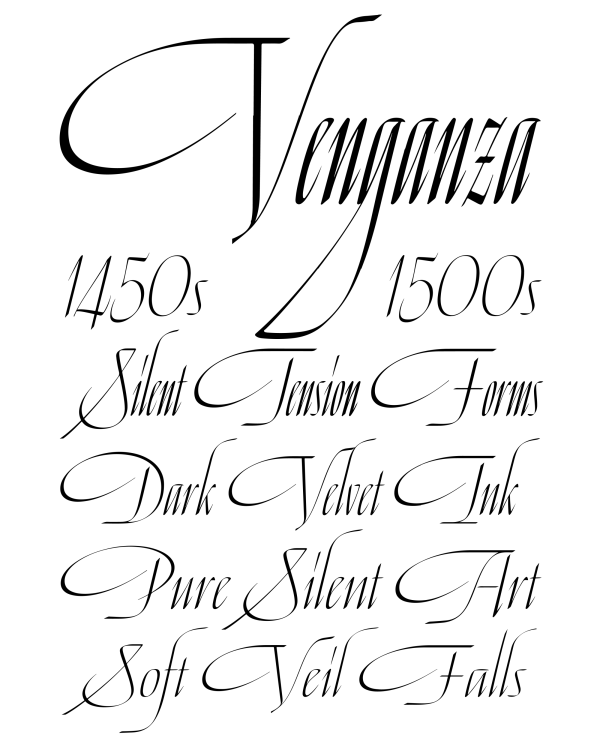 Venganza
1450s 1500s
Silent Tension Forms
Dark Velvet Ink
Pure Silent Art
Soft Veil Falls